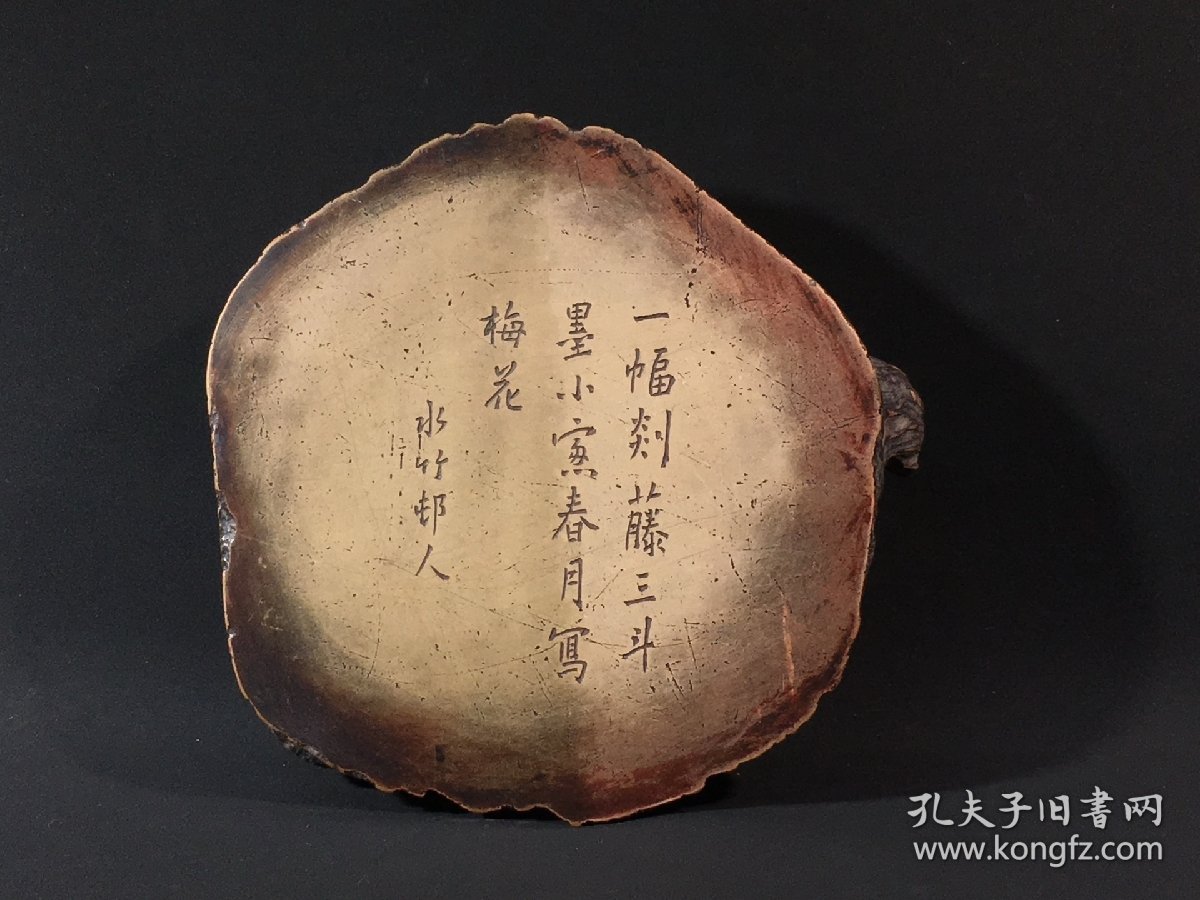 一幅剡藤三斗
墨小窻春月寫
梅花
水竹邨人
孔夫子旧書网
www.kongfz.com